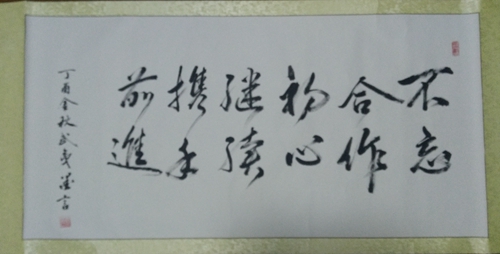 不忘
合作
初心
继續
携手
前進
丁酉金秋武夷言